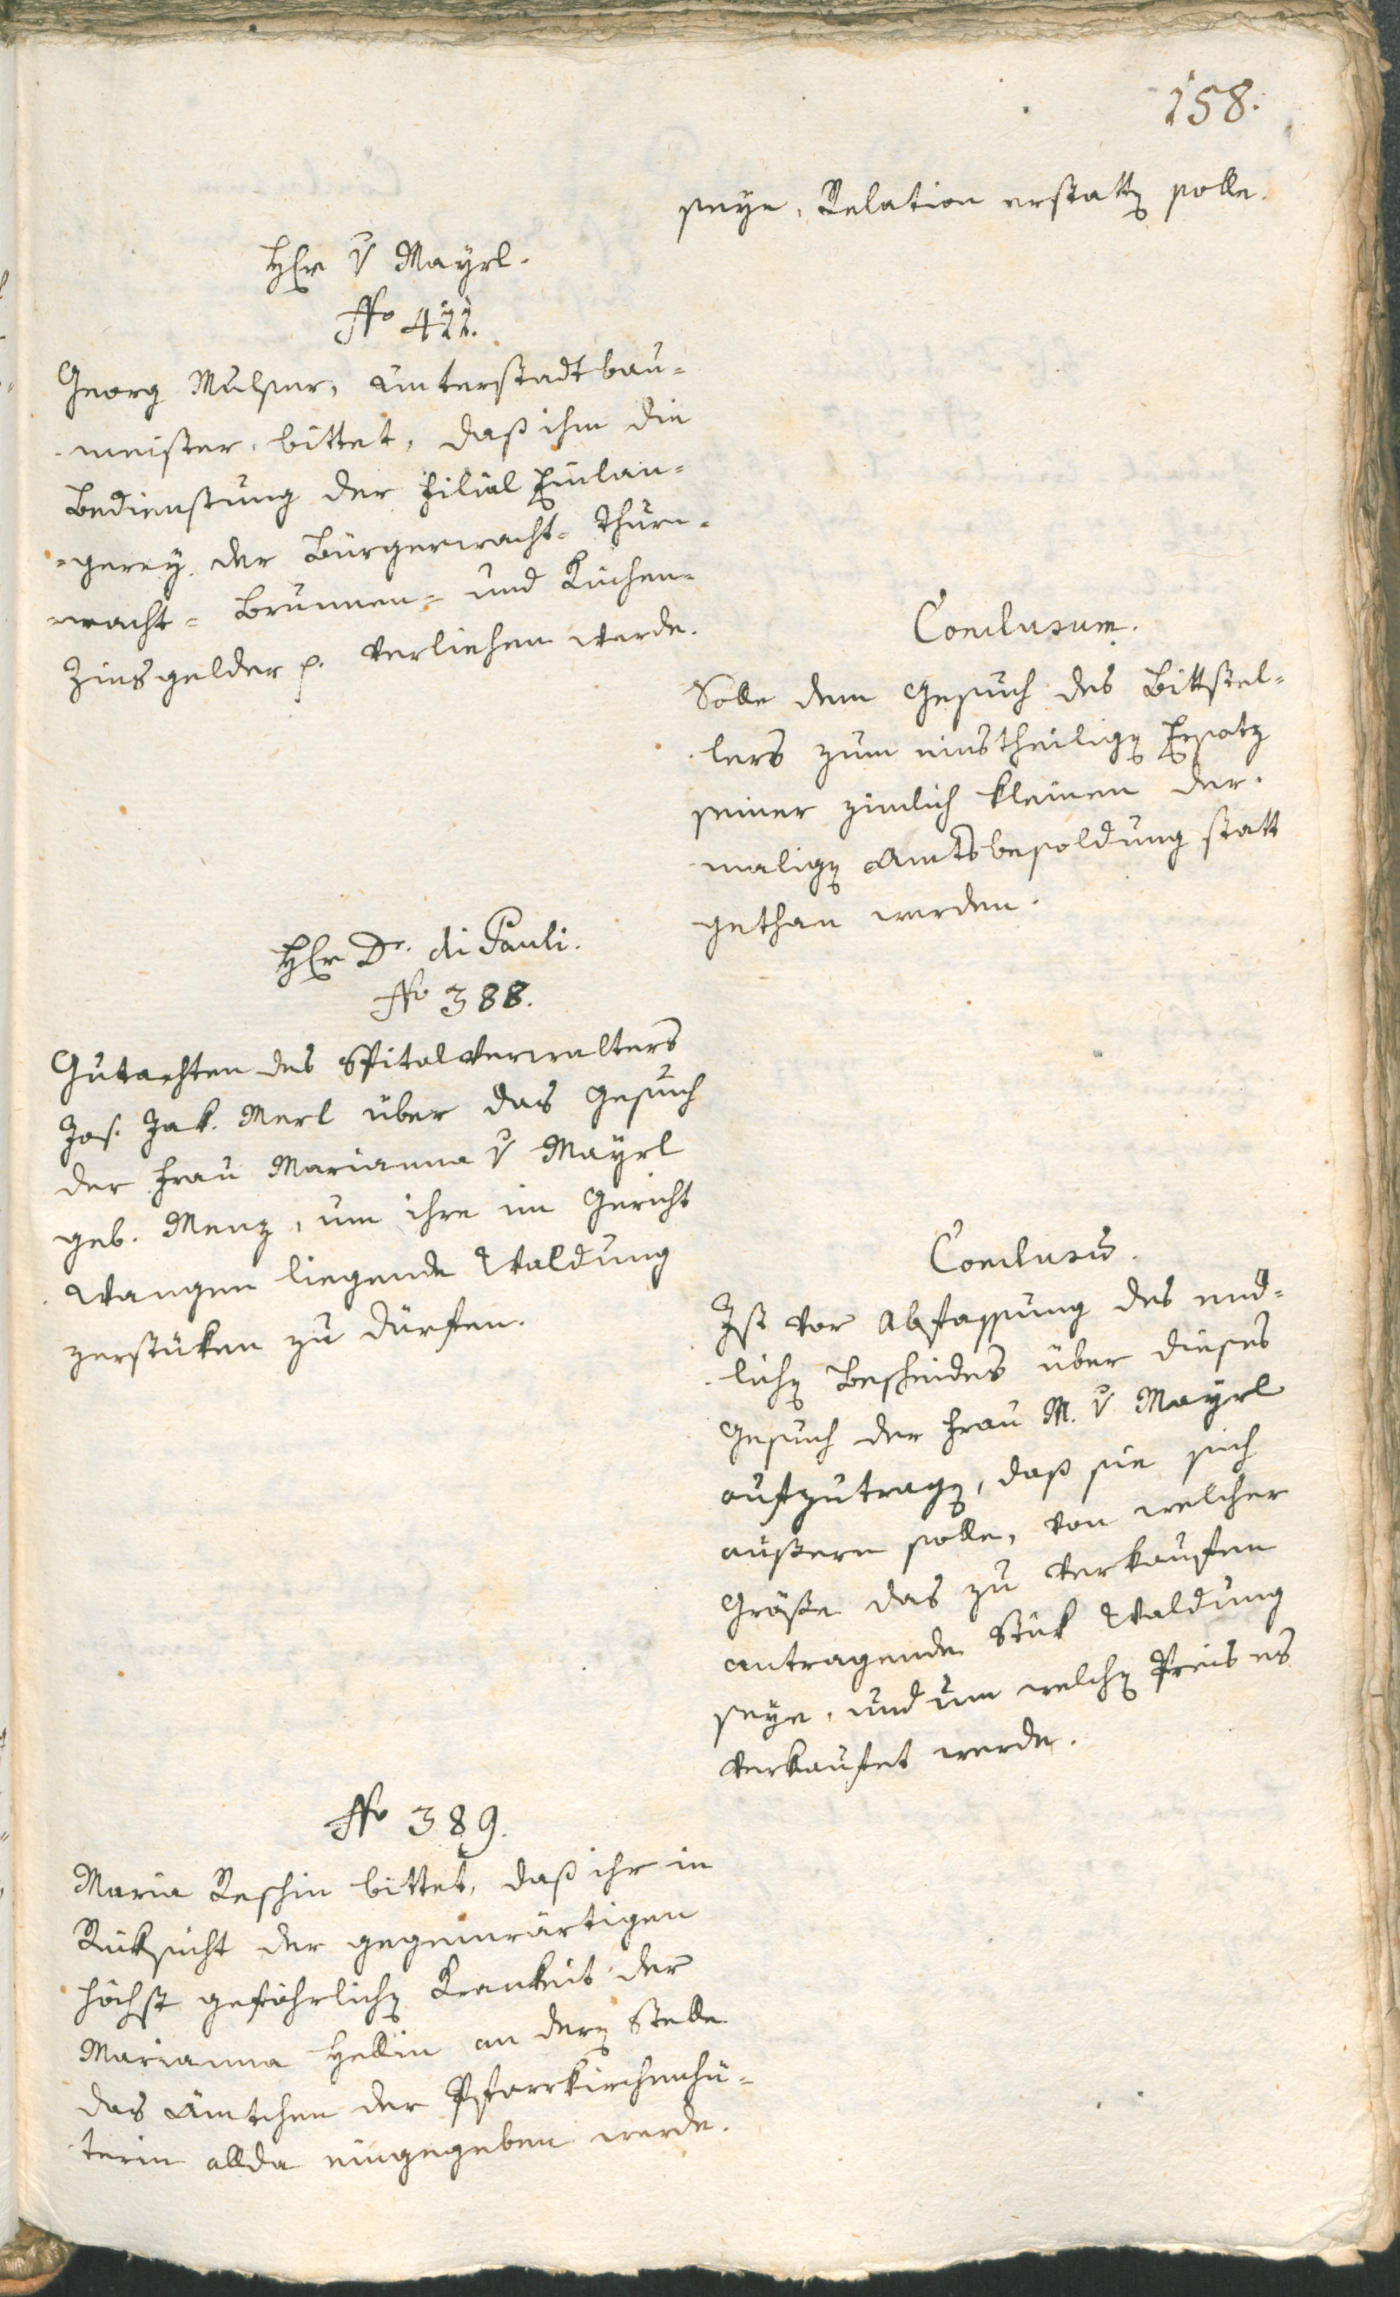 158.
seye, Relation erstatten solle.
Herr v Mayrl.
No 411.
Georg Mulser, Unterstadtbau=
meister bittet, daß ihm die
Bedienstung der Filial Einlan=
=gerey der Bürgerwacht= Thurn=
=wacht= Brunnen= und Kuchen=
Zinsgelder p. verliehen werde.
Conclusum.
Solle dem Gesuch des Bittstel=
lers zum einstheiligen Ersatz
seiner zimlich kleinen der=
maligen Amtsbesoldung statt
gethan werden.
Herr Dr. di Pauli.
No 388.
Gutachten des Spitalverwalters
Jos. Jak. Merl über das Gesuch
der Frau Marianna v Mayrl
geb. Menz, um ihre im Gericht
Wangen liegende Waldung
zerstüken zu dürfen.
Conclusum.
Ist vor Abfassung des end=
lichen Bescheides über dieses
Gesuch der Frau M. v Mayrl
aufzutragen, daß sie sich
äußern solle, von welcher
Größe das zu verkaufen
antragende Stük Waldung
seye, und um welchen Preis es
verkaufet werde.
No 389.
Maria Reschin bittet, daß ihr in
Rüksicht der gegenwärtigen
höchst gefährlichen Krankeit der
Marianna Hellin an deren Stelle
das Ämtchen der Pfarrkirchenhü=
terin allda eingegeben werde.